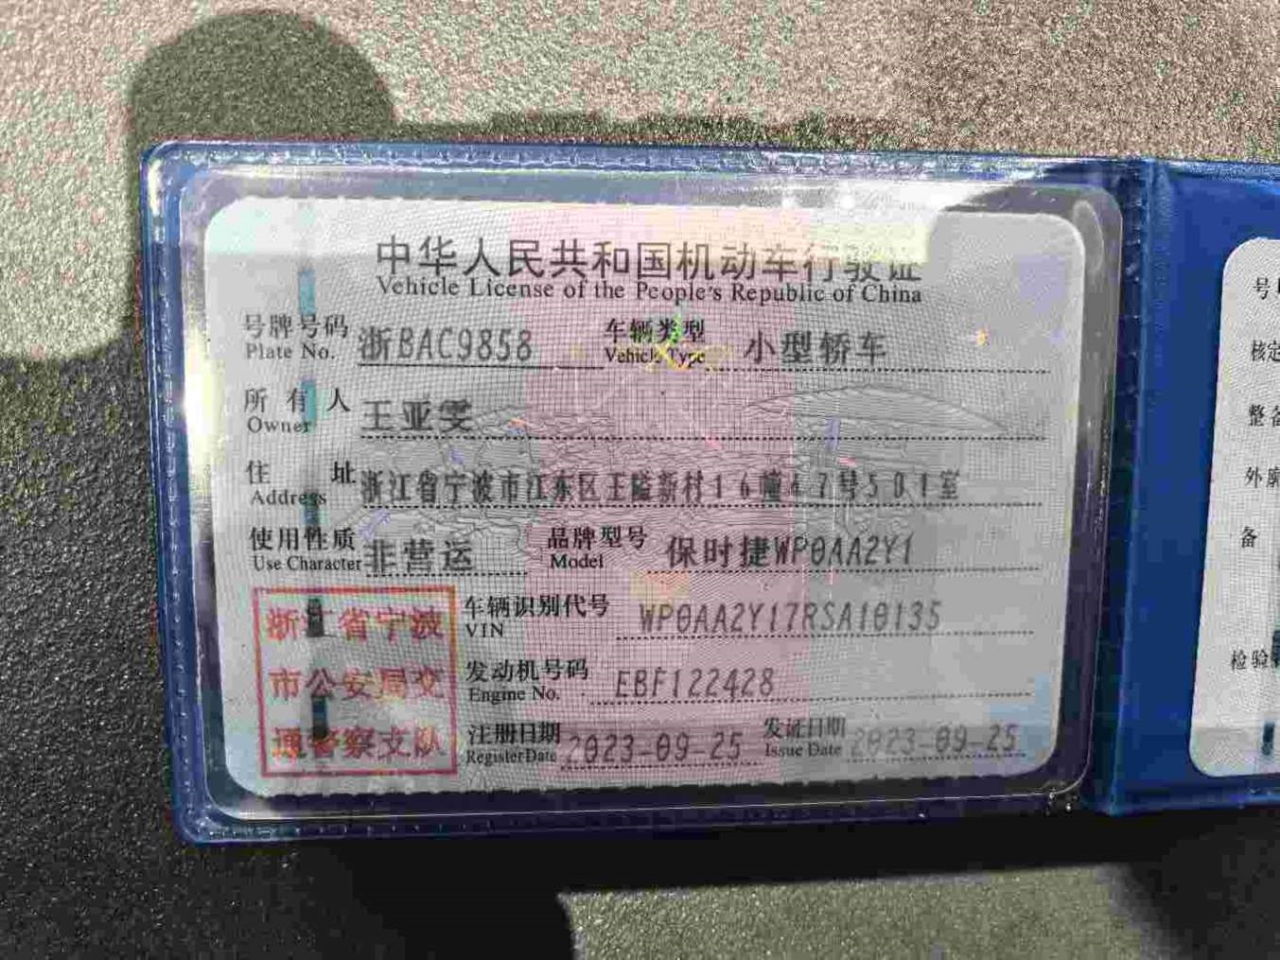 中华人民共和国机动车行驶证
Vehicle License of the People's Republic of China
号牌号码 浙BAC9858 车辆类型 小型轿车
Plate No. Vehicle Type
所有人 王亚雯
Owner
住址 浙江省宁波市江东区王隘新村16幢47号501室
Address
使用性质 非营运 品牌型号 保时捷WP0AA2Y1
Use Character Model
浙江省宁波
市公安局交
通警察支队
车辆识别代号 WP0AA2Y17RSA10135
VIN
发动机号码 EBF122428
Engine No.
注册日期 2023-09-25 发证日期 2023-09-25
Register Date Issue Date
号
核定
整备
外廓
备
检验